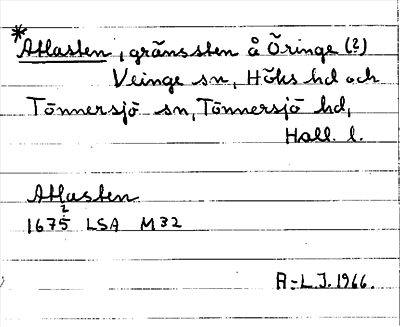 *Atlasten, gränssten å Öringe (?)
Veinge sn, Höks hd och
Tönnersjö sn, Tönnersjö hd,
Hall. l.
Atlasten
2
1675 LSA M32
A=L.J. 1966.